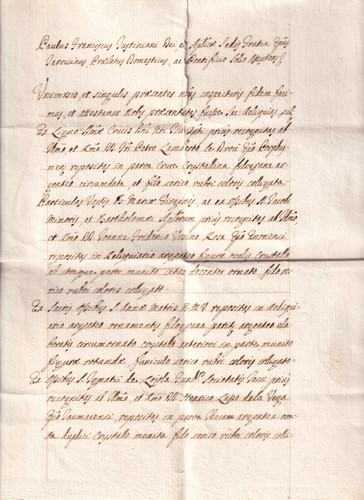 Paulus Franciscus Justiniani Dei et Aplicæ Sedis Gratia Epus
Tarvisinus, Prælatus Domesticus, ac Pontificio Solio
Universis et singulis præsentes nras inspecturis fidem faci-
mus, et attestamur Nobis præsentatas fuisse Sac. Reliquias,
Ex Ligno Smæ Crucis Dni Nri prius recognitas ab
Illmo et Rmo DD. Petro Lamberto le Epo
repositas in parva Cruce Crystallina filograna ar-
gentea circumdata et filo serico rubri coloris colligata
Particulas Vestis B. Mariæ Virginis, ac ex Ossibus S. Jacobi
Minoris, et Bartholomæi Aplorum prius recognitas ab Illmo,
et Rmo DD. Joanne Epo
repositas in Reliquiario argenteo figuræ ovalis Crystallo
ab utraque parte munito ornato, filo se-
rico rubri coloris colligato.
Ex Sacris Ossibus S. Annæ Matris B. M. V. repositas in Reliqui-
ario argenteo ornamentis filograna pariter argentea ela-
boratis circumornato crystallo anteriori in parte munito
figuræ rotundæ, funiculo serico rubri coloris colligato.
Ex Ossibus S. Ignatii de Lojola Societatis Jesu prius
recognitas ab Illmo, et Rmo DD. Lasso de la Vega
Epo repositas in parva Theca argentea
duplici Crystallo munita filo serico rubri coloris colli-